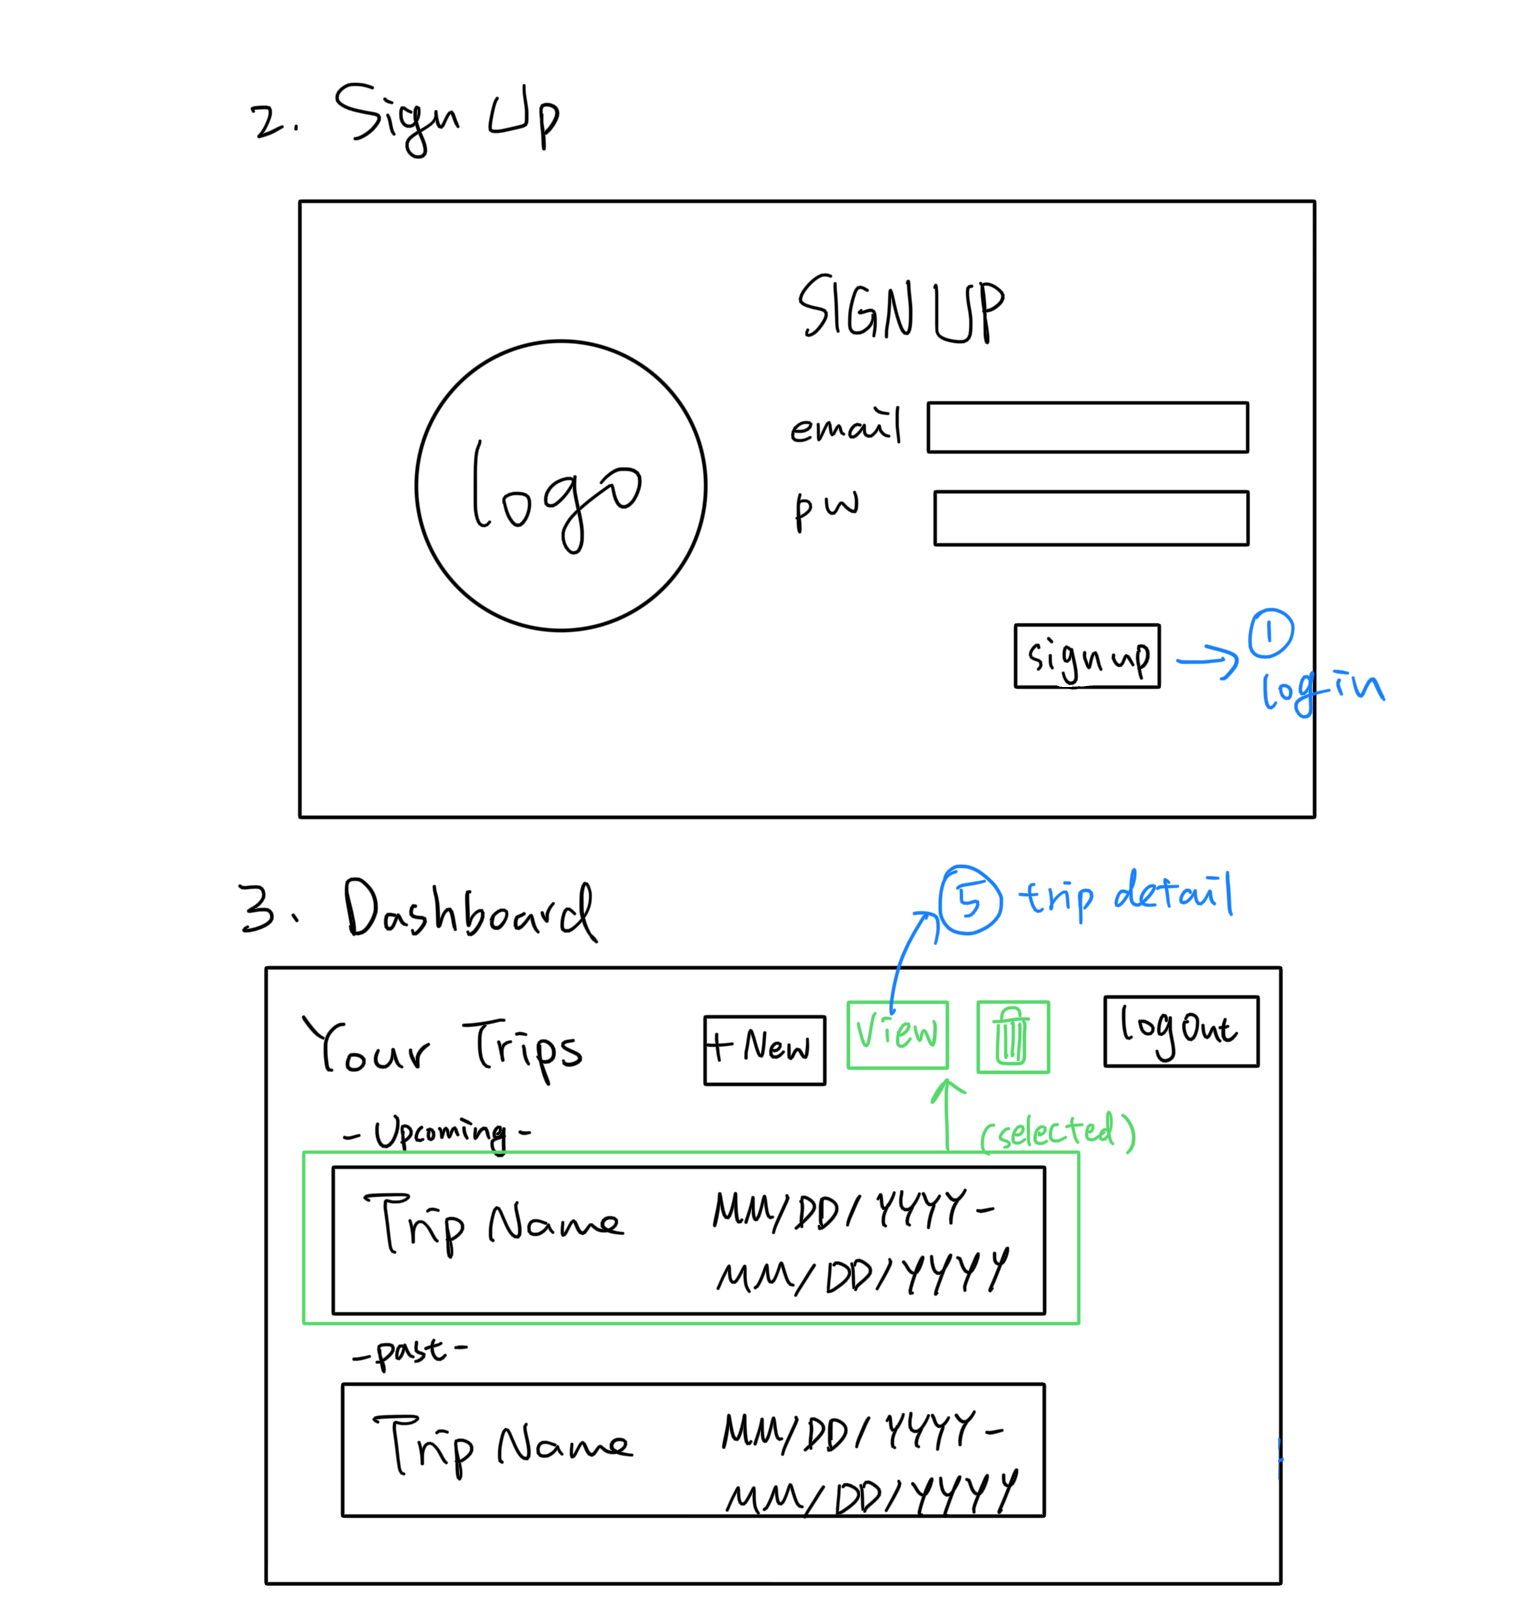 2. Sign Up
SIGN UP
logo
email
pw
sign up
1
log in
3. Dashboard
5 trip detail
Your Trips
+ New
View
log out
- Upcoming -
(selected)
Trip Name
MM/DD/YYYY -
MM/DD/YYYY
- past -
Trip Name
MM/DD/YYYY -
MM/DD/YYYY